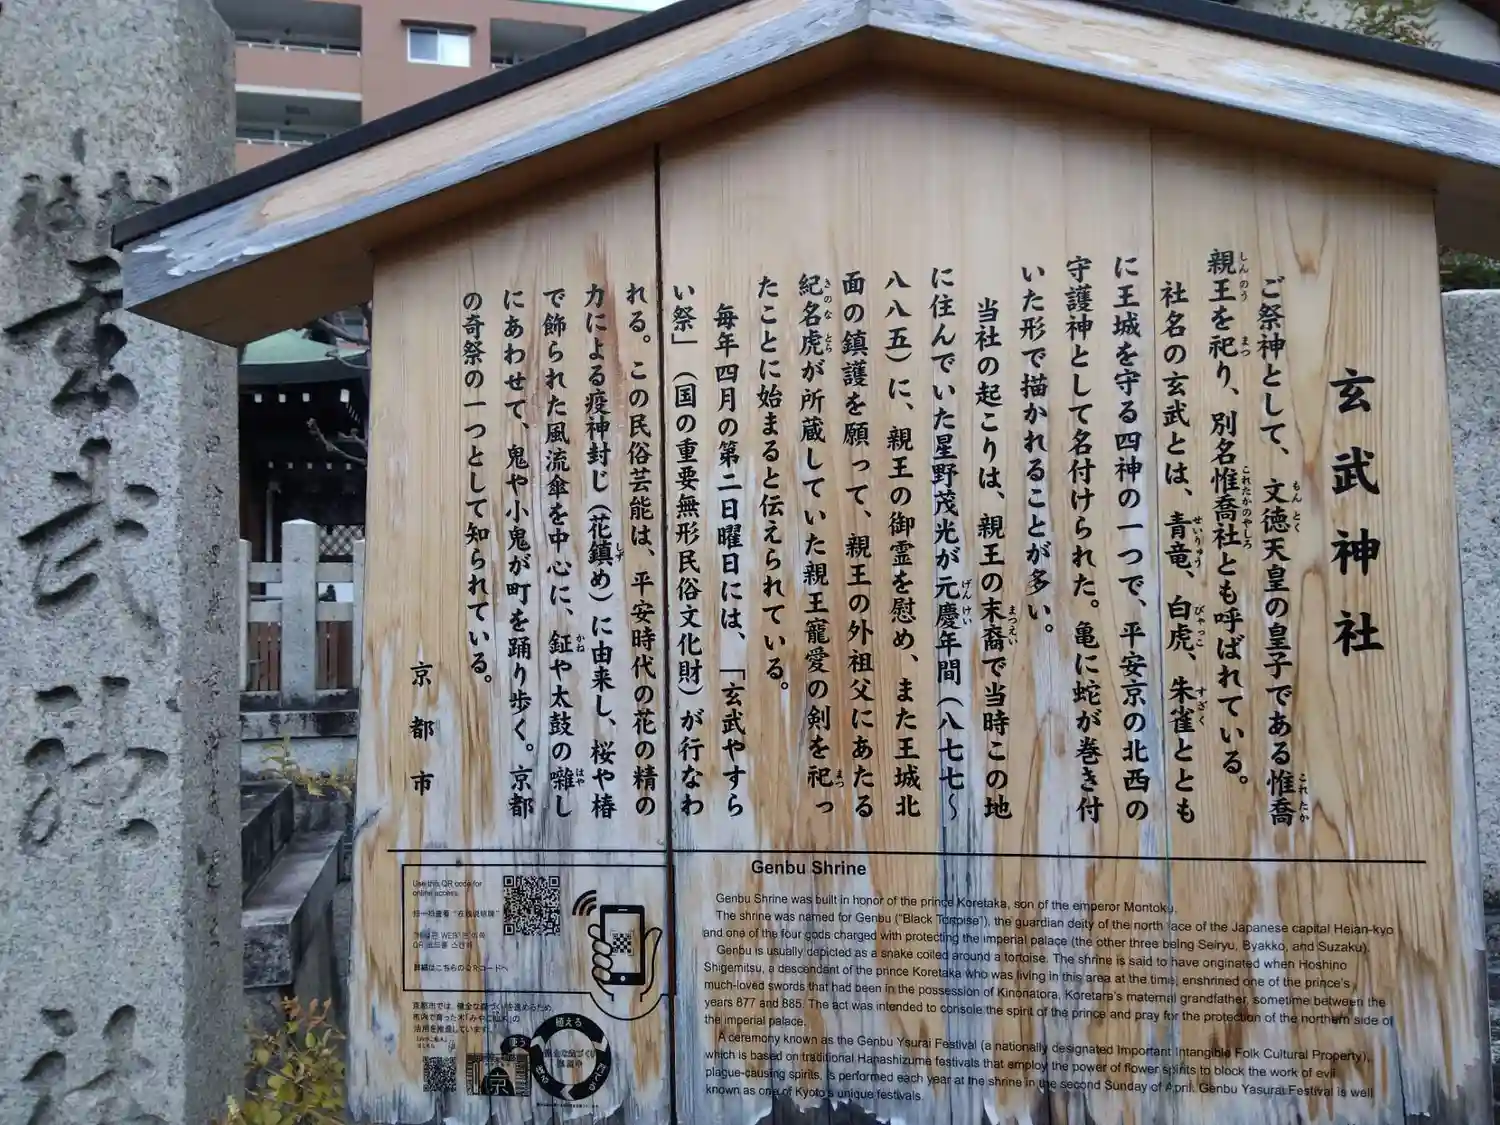 玄武神社
玄武神社
ご祭神として、文徳天皇の皇子である惟喬
親王を祀り、別名惟喬社とも呼ばれている。
社名の玄武とは、青竜、白虎、朱雀ととも
に王城を守る四神の一つで、平安京の北西の
守護神として名付けられた。亀に蛇が巻き付
いた形で描かれることが多い。
当社の起こりは、親王の末裔で当時この地
に住んでいた星野茂光が元慶年間（八七七〜
八八五）に、親王の御霊を慰め、また王城北
面の鎮護を願って、親王の外祖父にあたる
紀名虎が所蔵していた親王寵愛の剣を祀っ
たことに始まると伝えられている。
毎年四月の第二日曜日には、「玄武やすら
い祭」（国の重要無形民俗文化財）が行なわ
れる。この民俗芸能は、平安時代の花の精の
力による疫神封じ（花鎮め）に由来し、桜や椿
で飾られた風流傘を中心に、鉦や太鼓の囃し
にあわせて、鬼や小鬼が町を踊り歩く。京都
の奇祭の一つとして知られている。
京都市
Genbu Shrine
Genbu Shrine was built in honor of the prince Koretaka, son of the emperor Montoku.
The shrine was named for Genbu ("Black Tortoise"), the guardian deity of the north face of the Japanese capital Heian-kyo
and one of the four gods charged with protecting the imperial palace (the other three being Seiryu, Byakko, and Suzaku).
Genbu is usually depicted as a snake coiled around a tortoise. The shrine is said to have originated when Hoshino
Shigemitsu, a descendant of the prince Koretaka who was living in this area at the time, enshrined one of the prince's
much-loved swords that had been in the possession of Kinonatora, Koretara's maternal grandfather, sometime between the
years 877 and 885. The act was intended to console the spirit of the prince and pray for the protection of the northern side of
the imperial palace.
A ceremony known as the Genbu Ysurai Festival (a nationally designated Important Intangible Folk Cultural Property),
which is based on traditional Hanashizume festivals that employ the power of flower spirits to block the work of evil
plague-causing spirits, is performed each year at the shrine in the second Sunday of April. Genbu Yasurai Festival is well
known as one of Kyoto's unique festivals.
Use this QR code for
online access.
詳細はこちらのQRコードへ
京都市では、健全な森づくりを進めるため、
市内で育った木「みやこ杣木」の
活用を推進しています。
植える